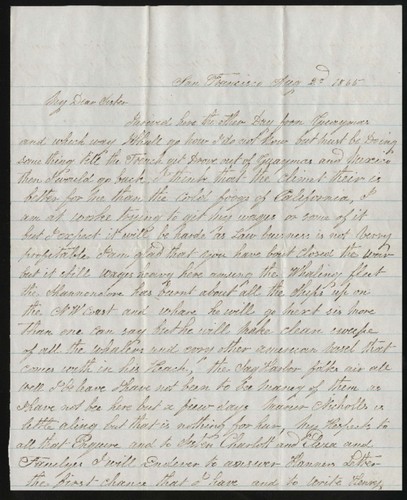 San Francisco Aug 2d 1865
My Dear Sister
I arived here the other Day from Guaymas
and which way I Shall go now I do not know but must be doing
some thing till the French get drove out of Guaymas and Mexico
then I would go back, I think that the Climet their is
better for me than the cold fogs of California, I
am at work trying to get my wages or some of it
but I expect it will be hard as Law business is not Very
profitable I am glad that you have bout closed the war
but it still wages heavy here among the Whaling fleet
the Shannandore has burnt about all the ships up on
the N W Coast and where he will go next is more
than one can say but he will make clean sweepe
of all the whalers and evry other american vesel that
comes with in her Reach, the Sag Harbor folks air all
well I beleave I have not been to see many of them as
I have not be her but a few days Nicholls is
little along but that is nothing for her My Respects to
all that Enquire and to Sister Charlott and Eliza and
Familyes I will Endever to answer Hannas Letter
the first chance that I have and to write Henry